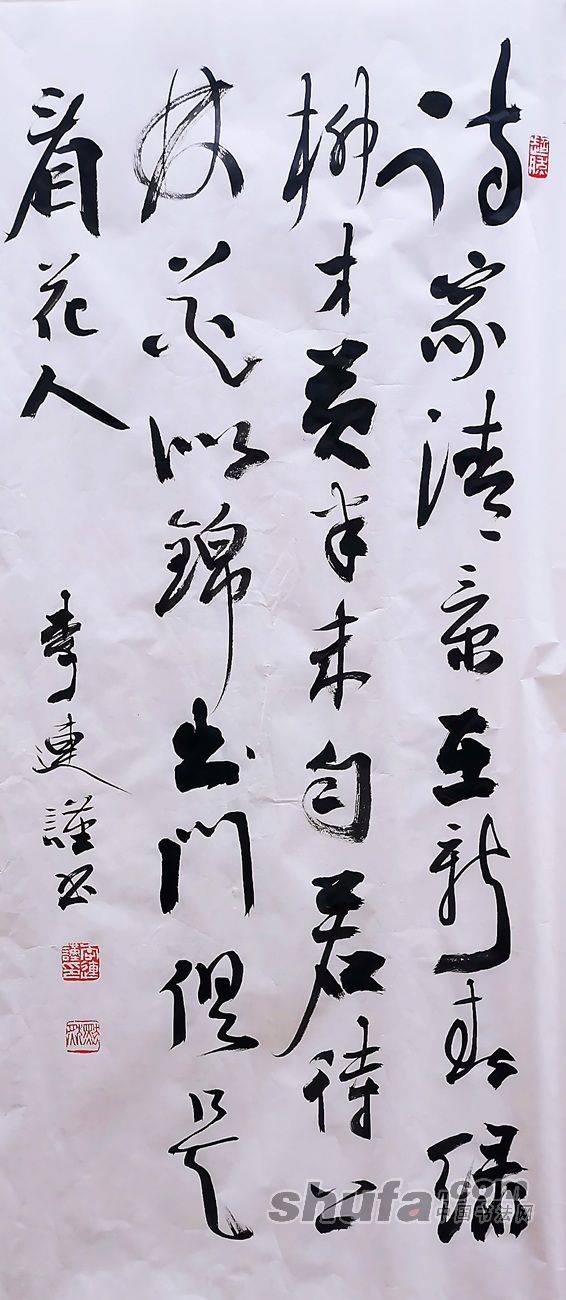 詩家清景在新春綠
柳才黄半未匀若待上
林花似錦出門俱是
看花人
連謹书
shufa.com
中国书法网